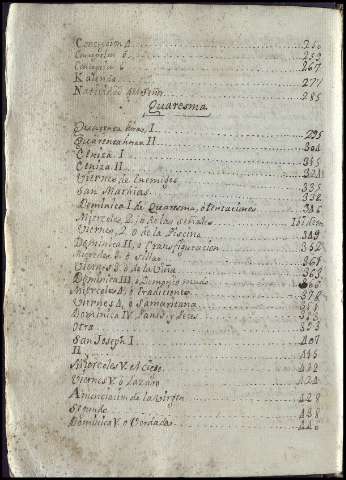 Concepcion 4 250
Concepcion 5 259
Concepcion 6 267
Kalenda 277
Natividad del Señor 285
Quaresma
Quarenta horas I 295
Quarenta horas II 304
Ceniza I 315
Ceniza II 324
Viernes de Enemigos 335
San Mathias 338
Dominica I de Quaresma, o tentaciones 346
Miercoles 2, o de las señales Ibidem
Viernes, 2 o de la Piscina 349
Dominica II, o Transfiguracion 352
Miercoles 3 o Sillas 361
Viernes 3 o de la Viña 363
Dominica III, o Demonio mudo
Miercoles 4, o Tradiciones 378
Viernes 4, o Samaritana
Dominica IV Panes y Peces
Otro
San Joseph I 407
II 415
Miercoles V. el Ciego
Viernes V. o Lazaro 424
Anunciacion de la Virgen 428
Segundo 438
Dominica V. o Verdades 446